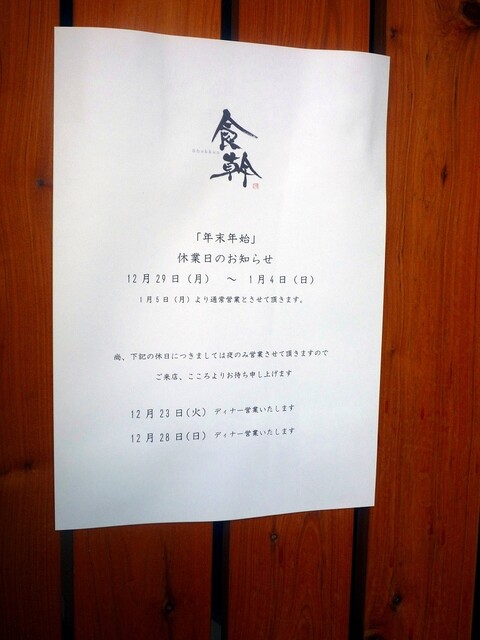 食幹
「年末年始」
休業日のお知らせ
12月29日(月) ～ 1月4日(日)
1月5日(月)より通常営業とさせて頂きます。
尚、下記の休日につきましては夜のみ営業させて頂きますので
ご来店、こころよりお待ち申し上げます
12月23日(火) ディナー営業いたします
12月28日(日) ディナー営業いたします